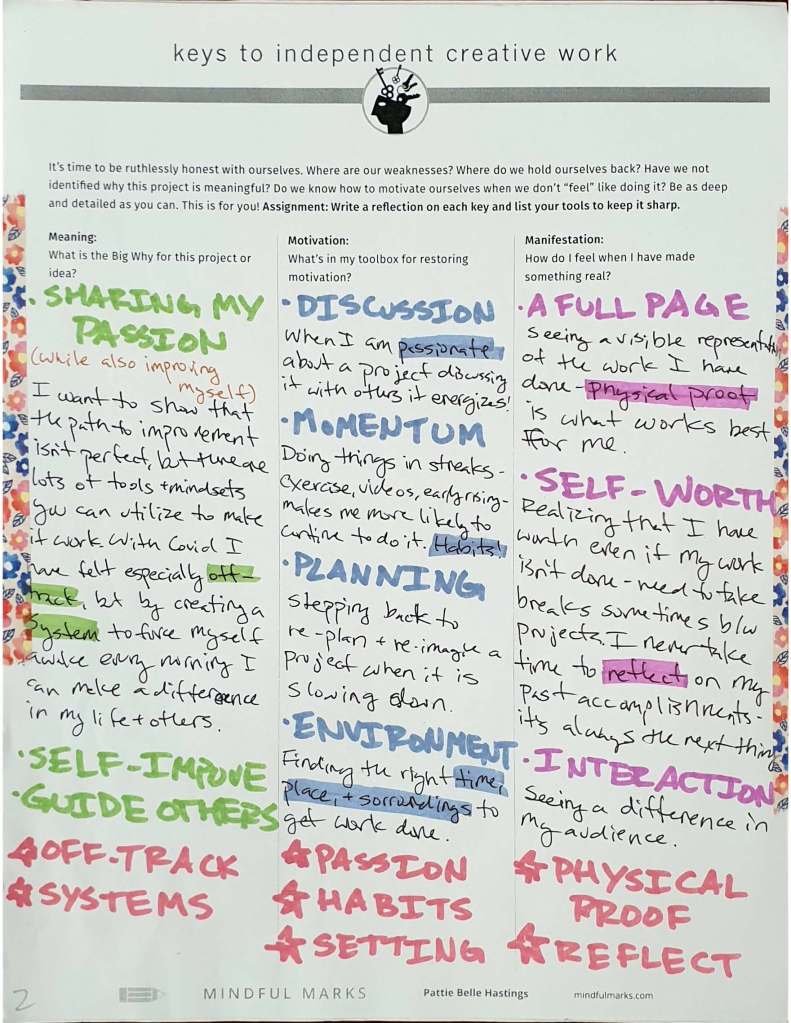 keys to independent creative work
It's time to be ruthlessly honest with ourselves. Where are our weaknesses? Where do we hold ourselves back? Have we not
identified why this project is meaningful? Do we know how to motivate ourselves when we don't "feel" like doing it? Be as deep
and detailed as you can. This is for you! Assignment: Write a reflection on each key and list your tools to keep it sharp.
Meaning:
What is the Big Why for this project or
idea?
• SHARING MY
PASSION
(while also improving
myself)
I want to show that
the path to improvement
isn't perfect, but there are
lots of tools + mindsets
you can utilize to make
it work. With Covid I
have felt especially off-
track, but by creating a
system to force myself
awake every morning I
can make a difference
in my life + others.
• SELF-IMPOVE
• GUIDE OTHERS
☆ OFF-TRACK
☆ SYSTEMS
Motivation:
What's in my toolbox for restoring
motivation?
• DISCUSSION
When I am passionate
about a project discussing
it with others it energizes!
• MOMENTUM
Doing things in streaks -
exercise, videos, early rising -
makes me more likely to
continue to do it. Habits!
• PLANNING
stepping back to
re-plan + re-imagine a
project when it is
slowing down.
• ENVIRONMENT
Finding the right time,
place, + sorroundings to
get work done.
☆ PASSION
☆ HABITS
☆ SETTING
Manifestation:
How do I feel when I have made
something real?
• A FULL PAGE
Seeing a visible representation
of the work I have
done - physical proof
is what works best
for me.
• SELF-WORTH
Realizing that I have
worth even if my work
isn't done - need to take
breaks sometimes b/w
projects. I never take
time to reflect on my
past accomplishments -
it's always the next thing
• INTERACTION
Seeing a difference in
my audience.
☆ PHYSICAL
PROOF
☆ REFLECT
2
MINDFUL MARKS
Pattie Belle Hastings
mindfulmarks.com